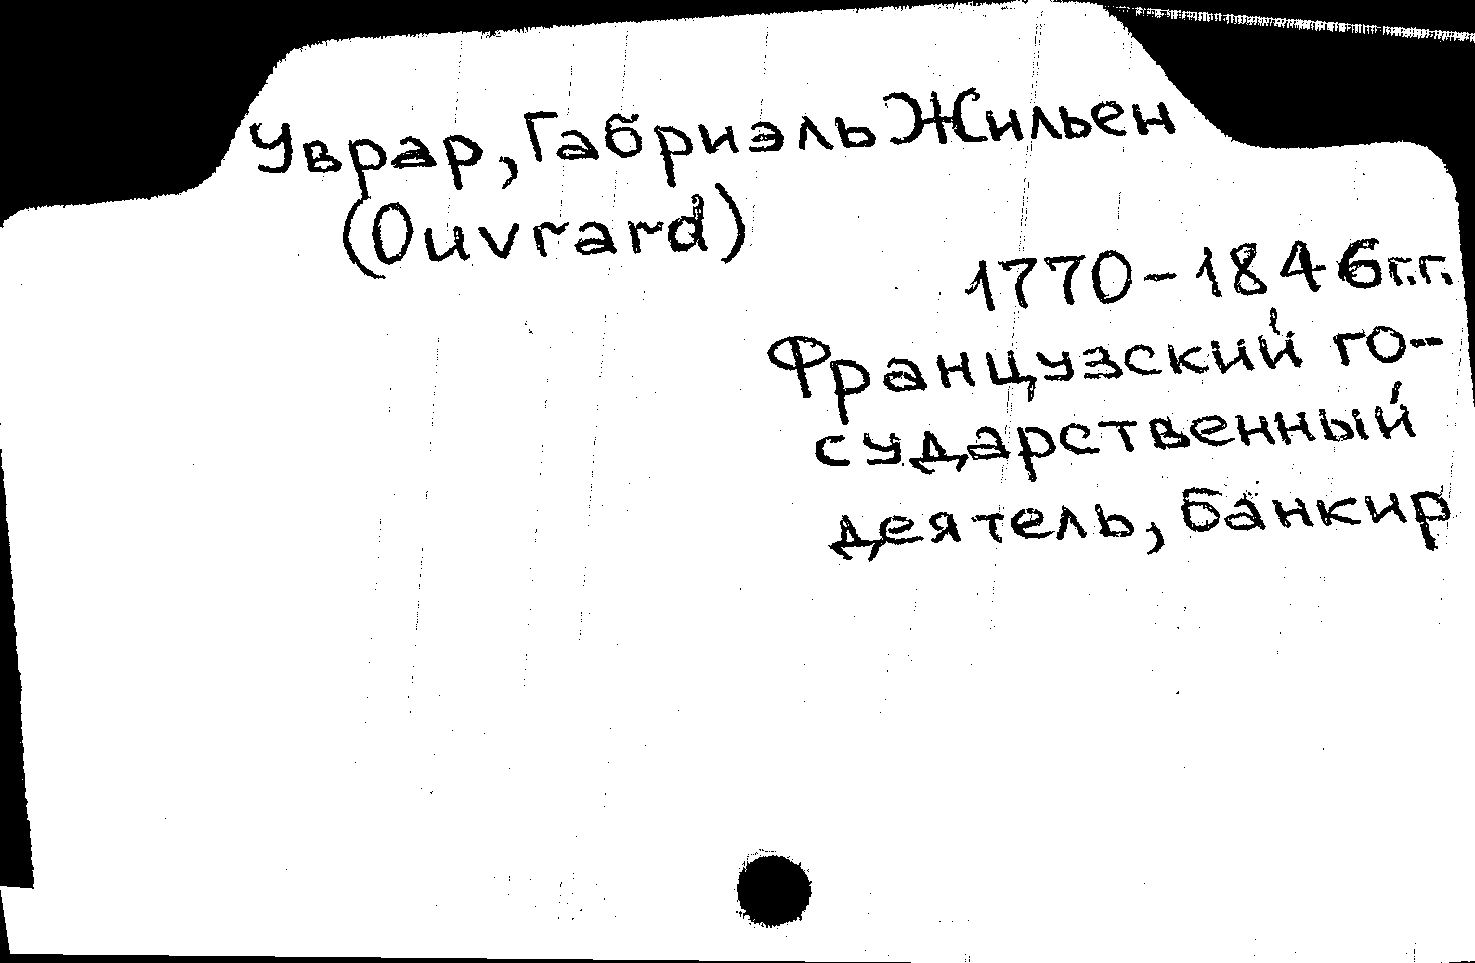 Уврар, Габриэль Жильен
(Ouvrard)
1770-1846г.г.
Французский го-
сударственный
деятель, банкир